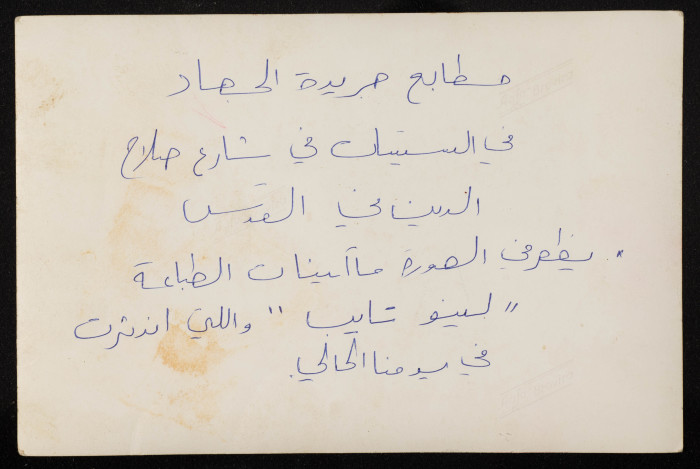 مطابع جريدة الجهاد
في الستينات في شارع صلاح
الدين في القدس
. يظهر في الصورة ماكينات الطباعة
"لينو تايب" واللي اندثرت
في يومنا الحالي.